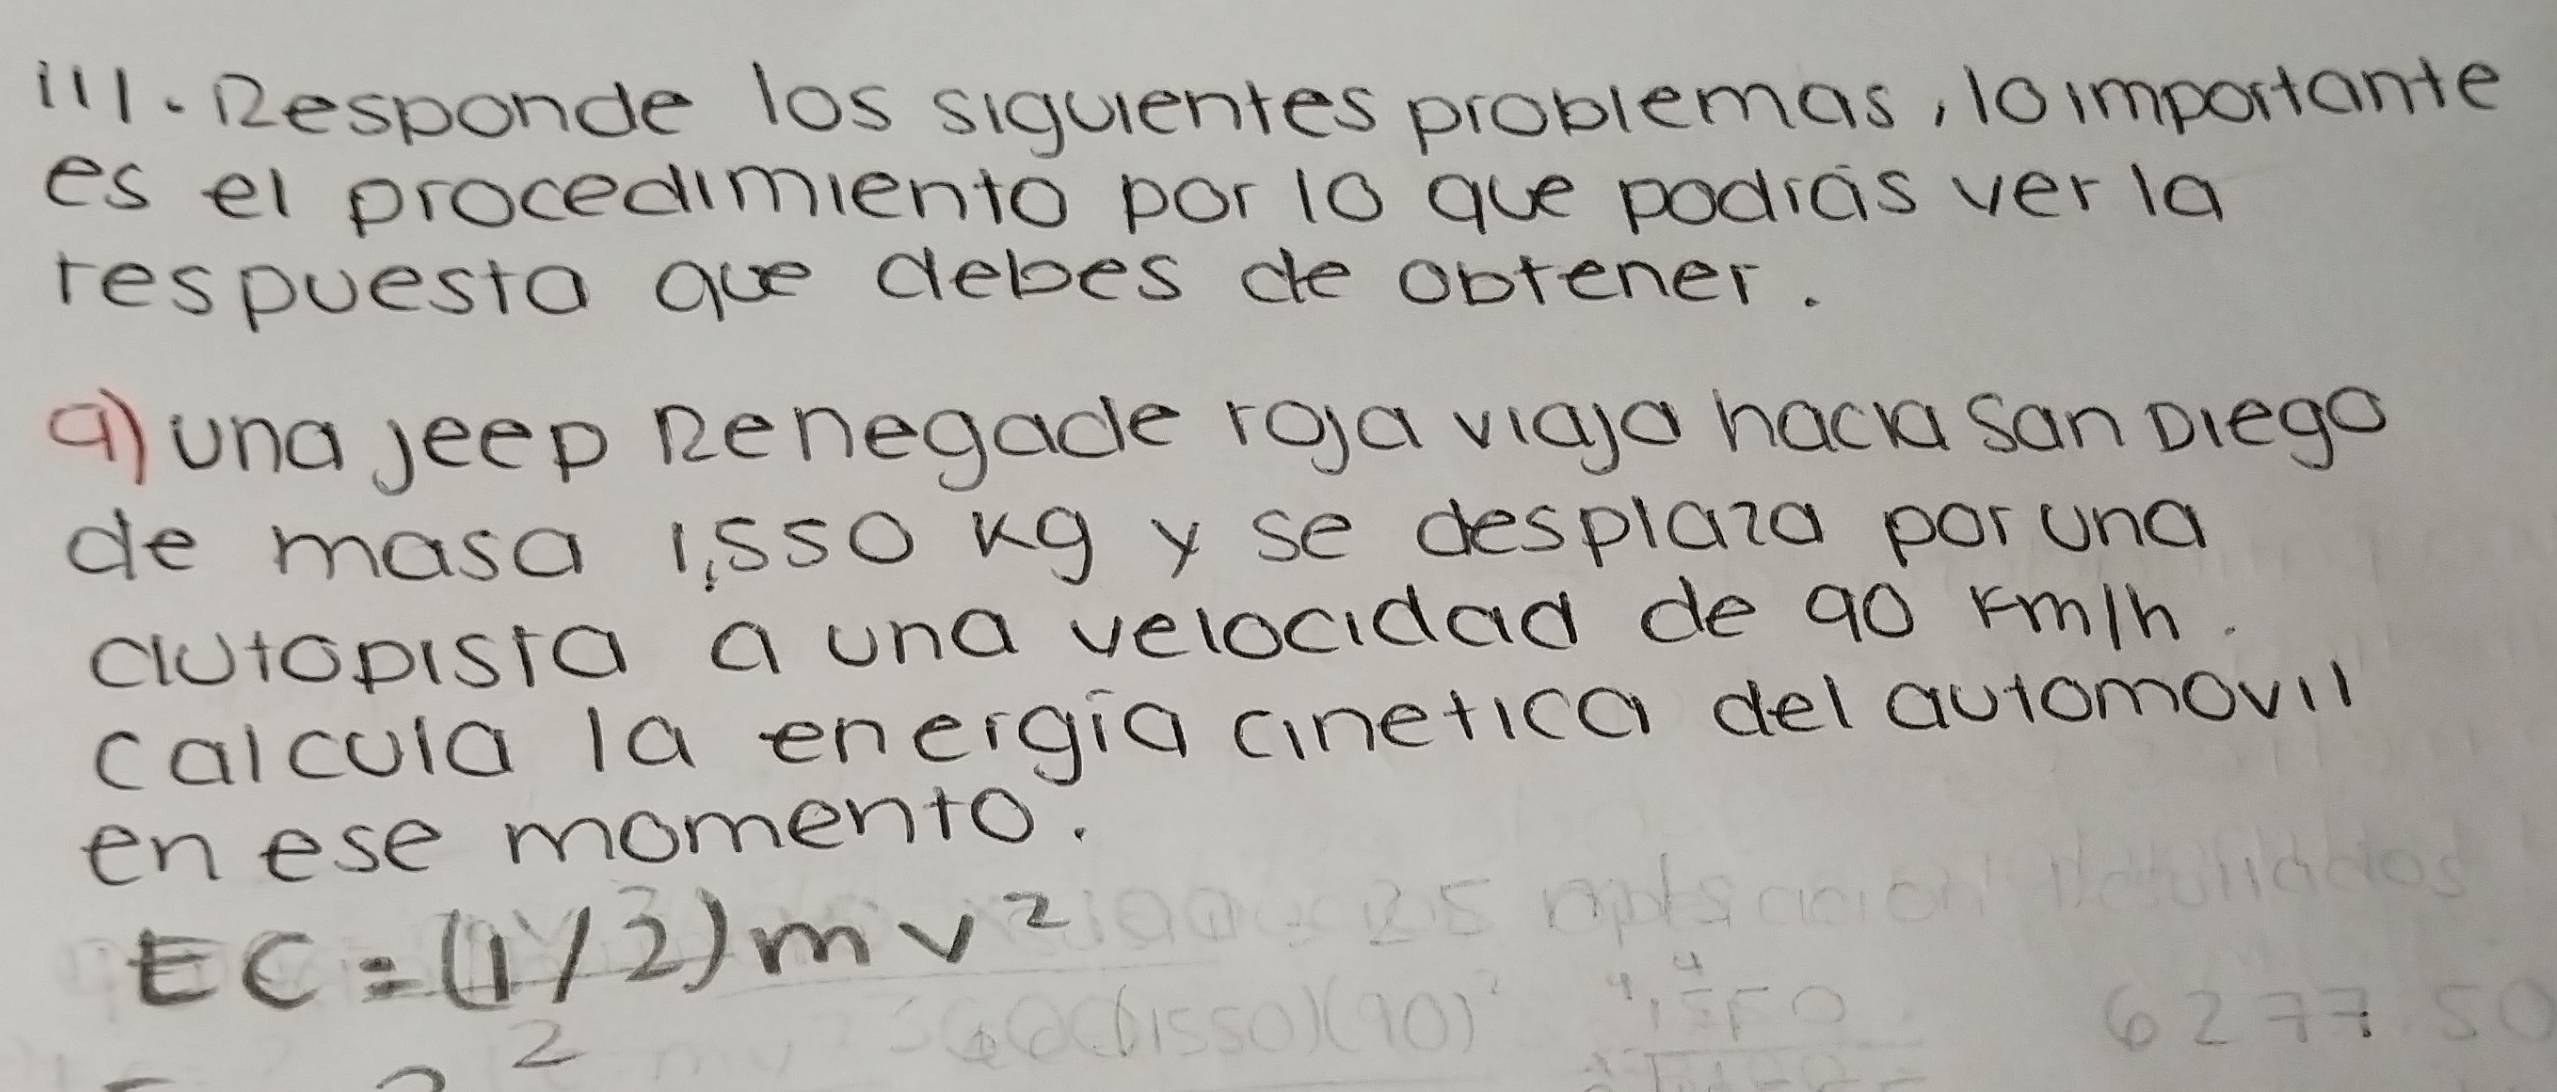 III. Responde los siguientes problemas, lo importante
es el procedimiento por lo que podrás ver la
respuesta que debes de obtener.
a) una jeep Renegade roja viaja hacia San Diego
de masa 1,550 kg y se desplaza por una
autopista a una velocidad de 90 km/h.
calcula la energía cinetica del automovil
en ese momento.
EC = (1/2) m v²
2
(1550)(90)²
1550
627750